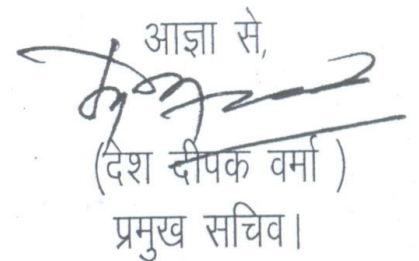 आज्ञा से,
(देश दीपक वर्मा )
प्रमुख सचिव।